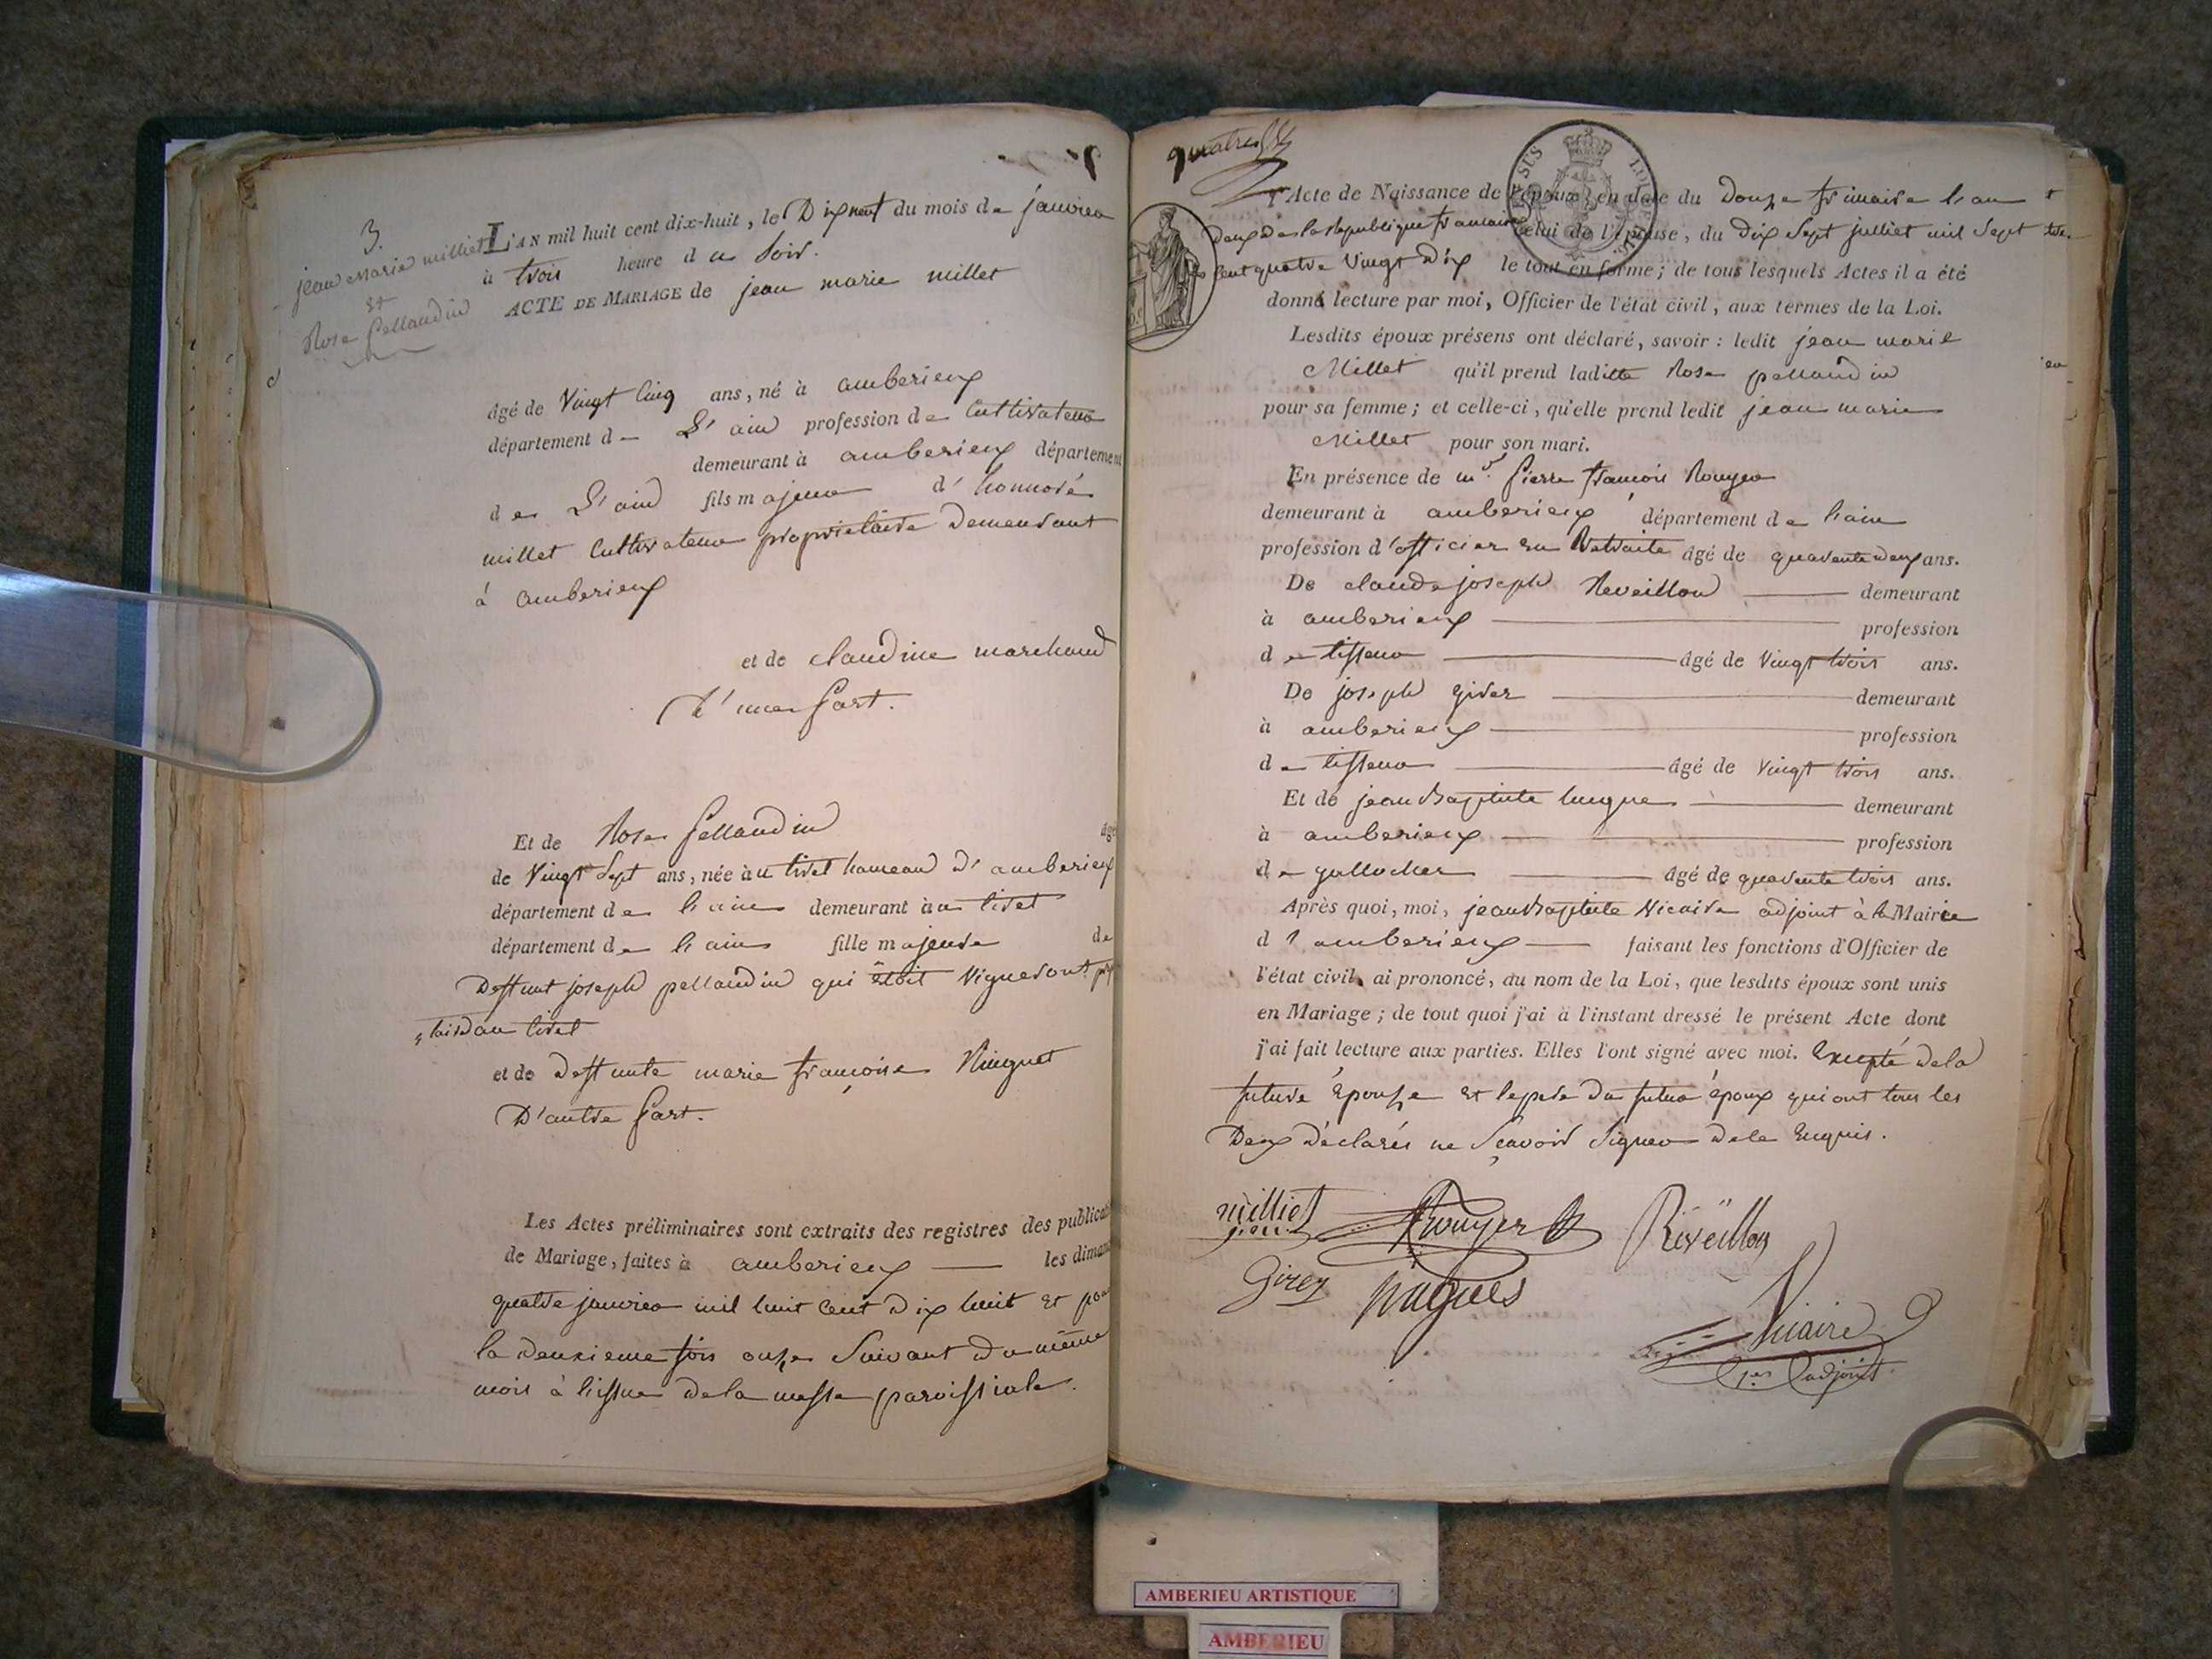 3.
jean Marie milliet
et
Rose Pellaudin
L'AN mil huit cent dix-huit, le Dix neuf du mois de janvier
à trois heure du Soir.
ACTE DE MARIAGE de jean marie millet
âgé de Vingt Cinq ans, né à amberieux
département de L'ain profession de Cultivateur
demeurant à amberieux département
de L'ain fils majeur d'honnoré
millet Cultivateur propriétaire Demeurant
à amberieux
et de claudine marchand
D'une Part.
Et de Rose Pellaudin âgé
de Vingt Sept ans, née au tiret hameau d'amberieux
département de l'ain demeurant au tiret
département de l'ain fille majeure de
Deffunt joseph pellaudin qui êtoit Vigneront
au tiret
et de deffunte marie françoise Ninguet
D'autre Part.
Les Actes préliminaires sont extraits des registres des publicat
de Mariage, faites à amberieux les diman
quatre janvier mil huit Cent dix huit et pour
la deuxieme fois onze Suivant du même
mois à l'issue de la messe paroissiale.
quatre
L'Acte de Naissance de l'époux en date du Douze frimaire l'an
Deux de la Republique francaise celui de l'épouse, du dix Sept julliet mil Sept
Cent quatre Vingt Dix le tout en forme; de tous lesquels Actes il a été
donné lecture par moi, Officier de l'état civil, aux termes de la Loi.
Lesdits époux présens ont déclaré, savoir: ledit jean marie
Millet qu'il prend laditte Rose pellaudin
pour sa femme; et celle-ci, qu'elle prend ledit jean marie
Millet pour son mari.
En présence de mr. Pierre françois Rouyer
demeurant à amberieux département de l'ain
profession d'officier en Retraite âgé de quarente deux ans.
De claude joseph Reveillon demeurant
à amberieux profession
de tisseur âgé de Vingt trois ans.
De joseph girer demeurant
à amberieux profession
de tisseur âgé de Vingt trois ans.
Et de jean Baptiste hugue demeurant
à amberieux profession
de âgé de quarente trois ans.
Après quoi, moi, jean Baptiste Nicaire adjoint à la Mairie
d'amberieux faisant les fonctions d'Officier de
l'état civil, ai prononcé, au nom de la Loi, que lesdits époux sont unis
en Mariage; de tout quoi j'ai à l'instant dressé le présent Acte dont
j'ai fait lecture aux parties. Elles l'ont signé avec moi. Excepté de la
future Epouse et le pere du futur époux qui ont tous les
Deux déclarés ne Sçavoir Signer de le Enquis.
milliet Rouyer Réveillon
Girer hugues
Nicaire
1er adjoint
AMBERIEU ARTISTIQUE
AMBERIEU